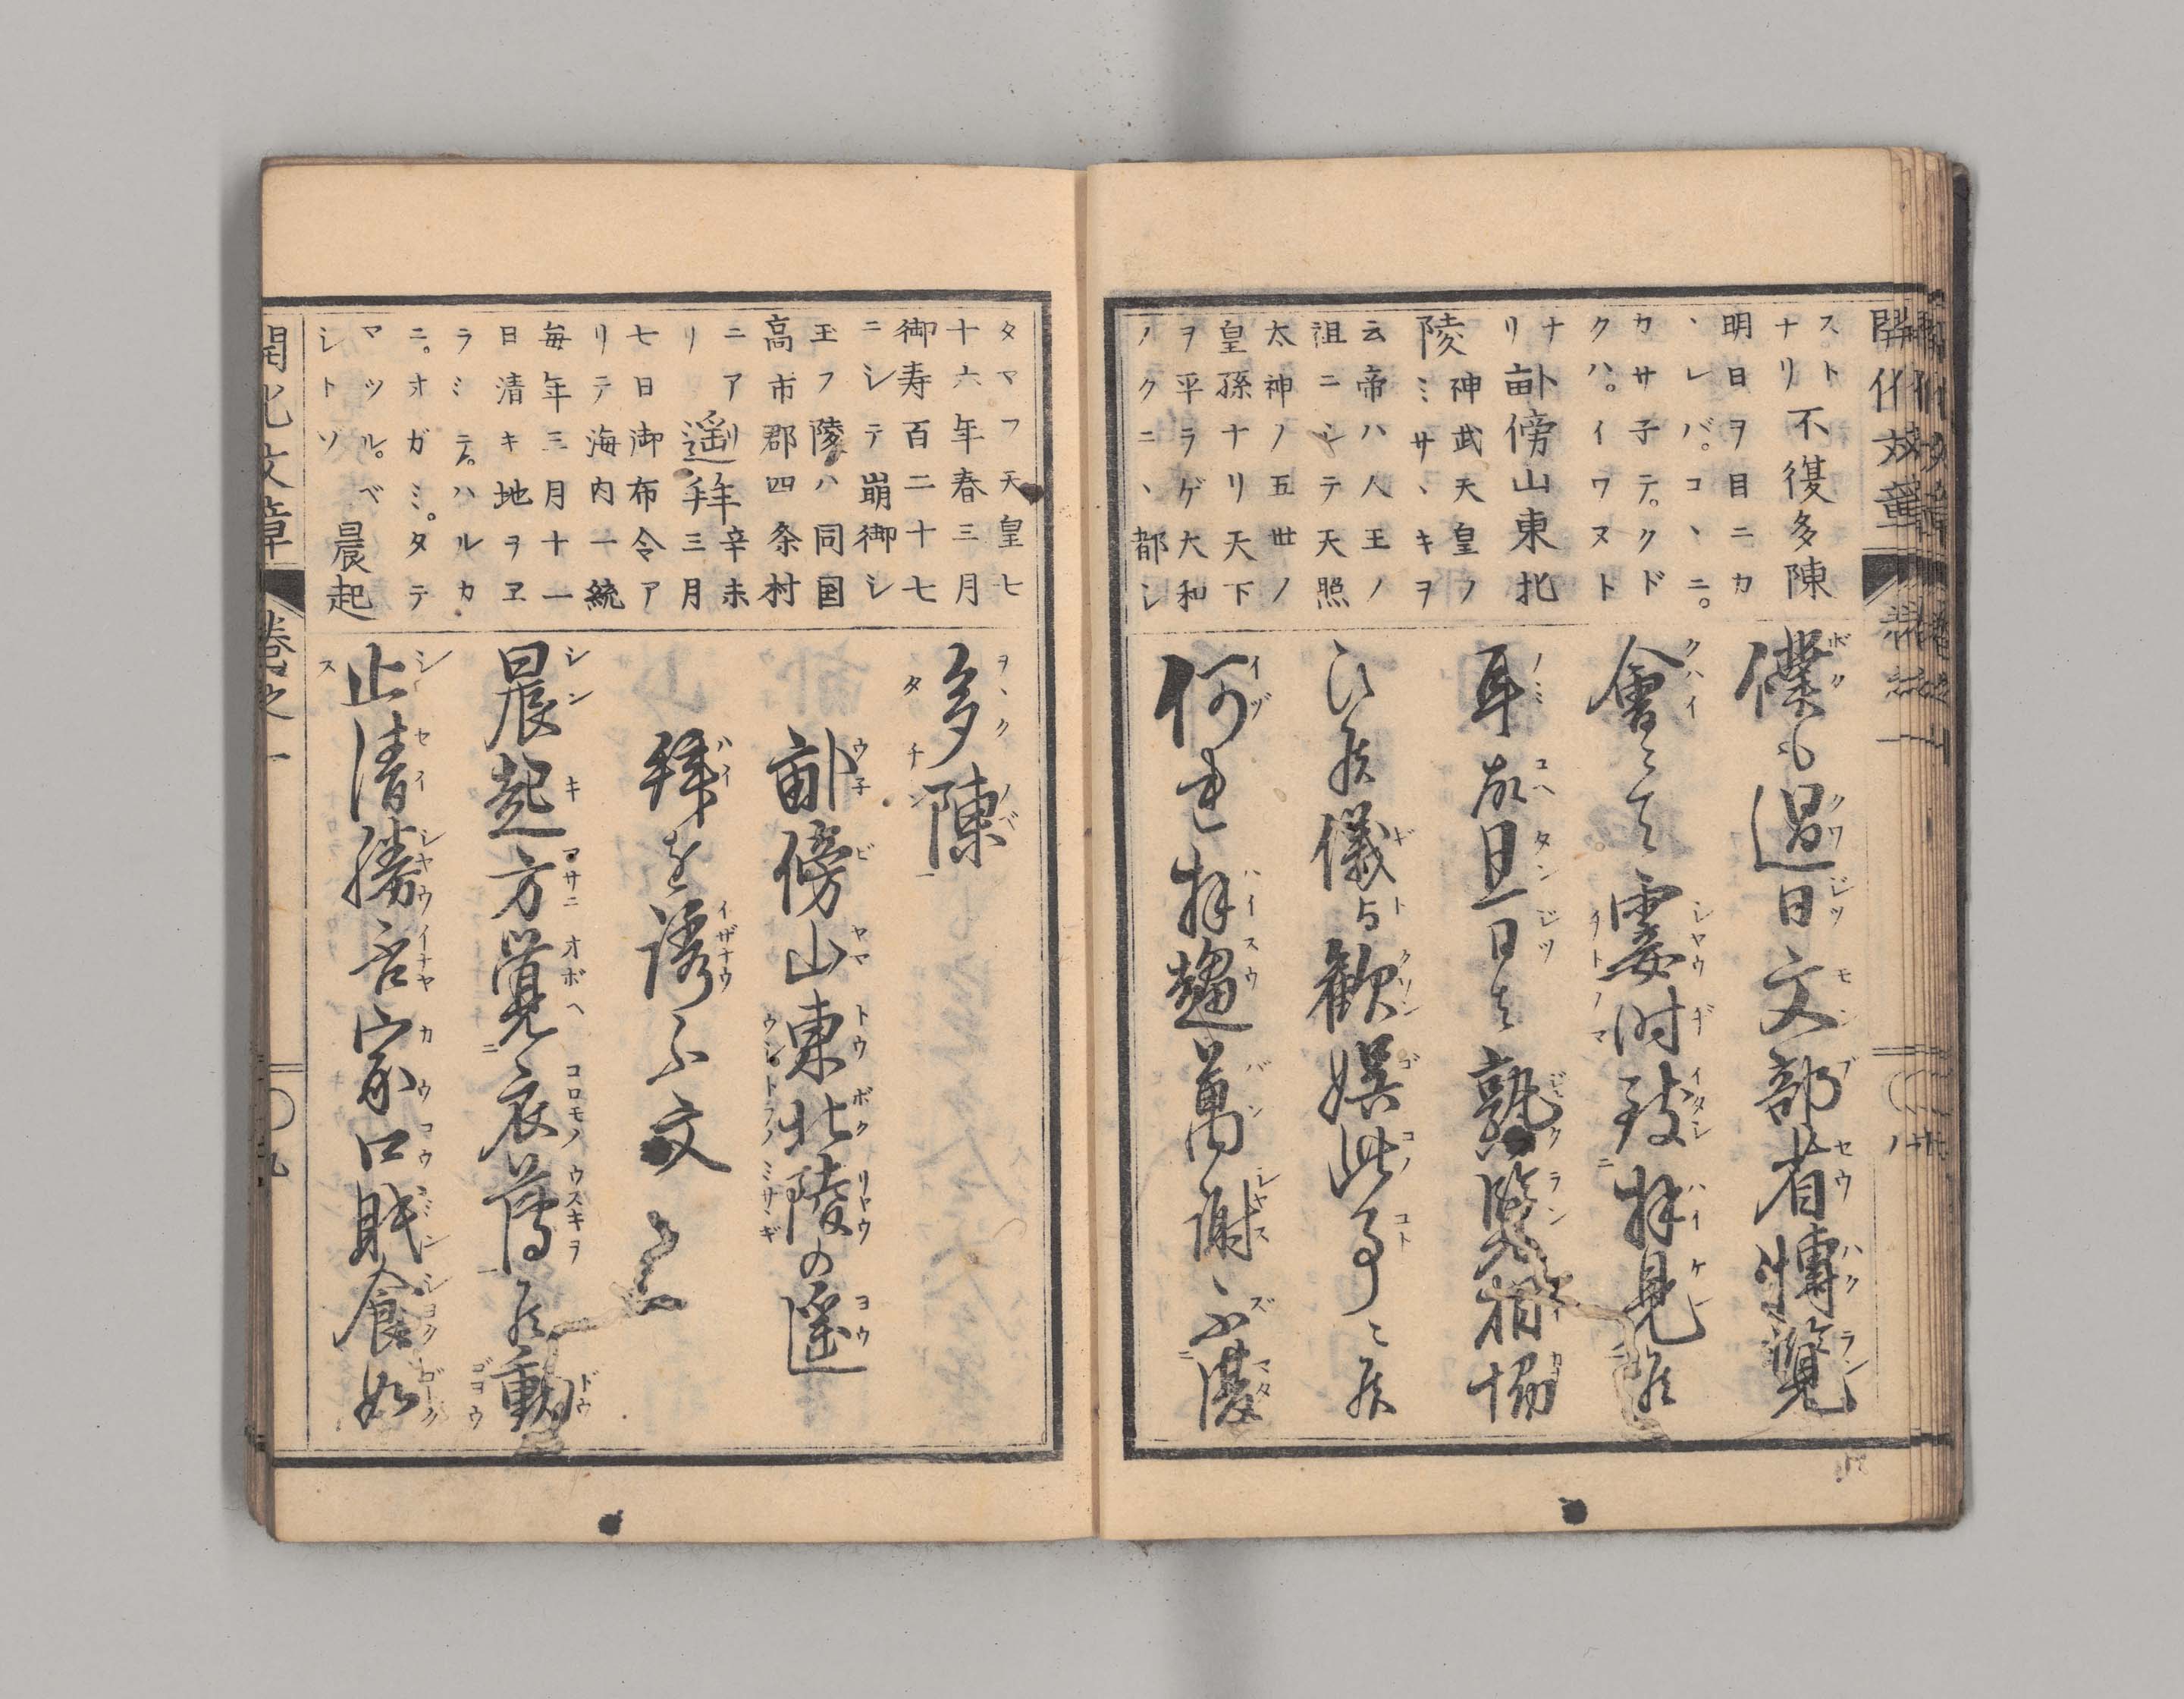 開化文章
ストナリ不復多陳
明日ヲ目ニカ
ヽレバ。コヽニ。
カサ子テ。クド
クハ。イワヌト
ナリ畝傍山東北
陵神武天皇ノミサヽキヲ
云帝ハ人王ノ
祖ニシテ天照
太神ノ五世ノ
皇孫ナリ天下
ヲ平ラゲ大和
ノクニヽ都シ
僕も過日文部省博覧
會ニて霎時致拝見候
耳故旦日は熟覧相協
ひ候儀与歓娯此事ニ候
何れ拝趨萬謝ヽ不復
タマフ天皇七
十六年春三月
御寿百二十七
ニシテ崩御シ
玉フ陵ハ同国
高市郡四条村
ニアリ遥拝辛未三月
七日御布令ア
リテ海内一統
毎年三月十一
日清キ地ヲヱ
ラミテ。ハルカ
ニ。オガミ。タテ
マツル。ベ
シトソ晨起
多陳
畝傍山東北陵の遥
拝を誘ふ文
晨起方覚衣薄候動
止清勝吾家口眠食如
開化文章
巻之一
〇九